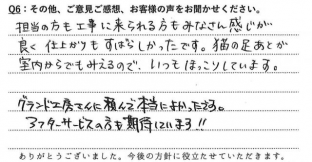 Q6:その他、ご意見ご感想、お客様の声をお聞かせください。
担当の方も工事に来られる方もみなさん感じが
良く仕上がりもすばらしかったです。猫の足あとが
室内からでもみえるので、いつもほっこりしています。
グランド工房さんに頼んで本当によかったです。
アフターサービスの方も期待しています!!
ありがとうございました。今後の方針に役立たせていただきます。